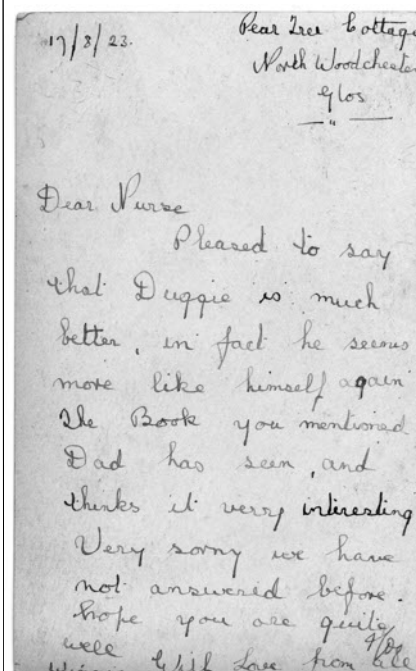 17/8/23.
Pear Tree Cottage
North Woodchester
Glos
Dear Nurse
Pleased to say
that Duggie is much
better, in fact he seems
more like himself again
The Book you mentioned
Dad has seen, and
thinks it verry interesting
Very sorry we have
not answered before.
hope you are quite
well
With Love from all